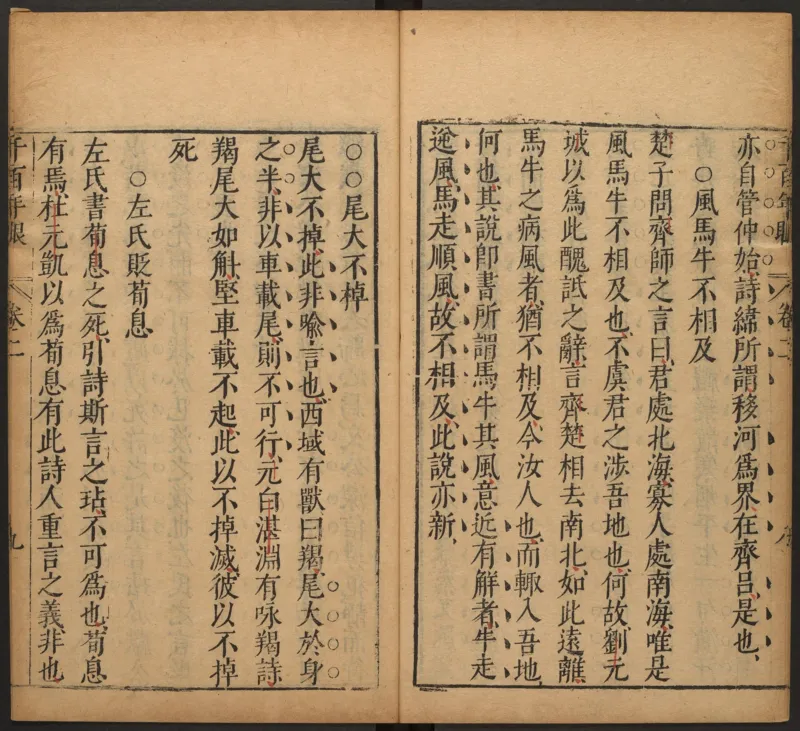 亦自管仲始詩緯所謂移河爲界在齊呂是也
○風馬牛不相及
楚子問齊師之言曰君處北海寡人處南海唯是
風馬牛不相及也不虞君之涉吾地也何故劉元
城以爲此醜詆之辭言齊楚相去南北如此遠離
馬牛之病風者猶不相及今汝人也而輙入吾地
何也其說卽書所謂馬牛其風意近有解者牛走
逆風馬走順風故不相及此說亦新
千百年眼 卷二 九
○○尾大不掉
尾大不掉此非喩言也西域有獸曰羯尾大於身
之半非以車載尾則不可行元白湛淵有咏羯詩
羯尾大如斛堅車載不起此以不掉滅彼以不掉
死
○左氏貶荀息
左氏書荀息之死引詩斯言之玷不可爲也荀息
有焉杜元凱以爲荀息有此詩人重言之義非也
千百年眼 卷二 九